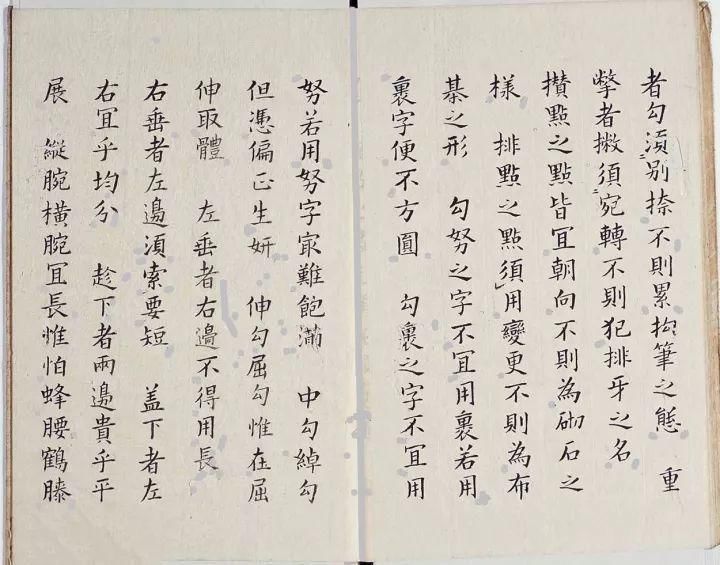 者勾湏别捺不則累拘筆之態　重
撆者撇須宛轉不則犯排牙之名
攅點之點皆冝朝向不則為砌石之
樣　排點之點須用變更不則為布
棊之形　勾努之字不冝用裹若用
裹字便不方圓　勾裹之字不冝用
努若用努字㝡難飽滿　中勾綽勾
但憑偏正生妍　伸勾屈勾惟在屈
伸取體　左垂者右邉不得用長
右垂者左邉湏索要短　盖下者左
右冝乎均分　趁下者兩邉貴乎平
展　縱腕橫腕冝長惟怕蜂腰鶴膝